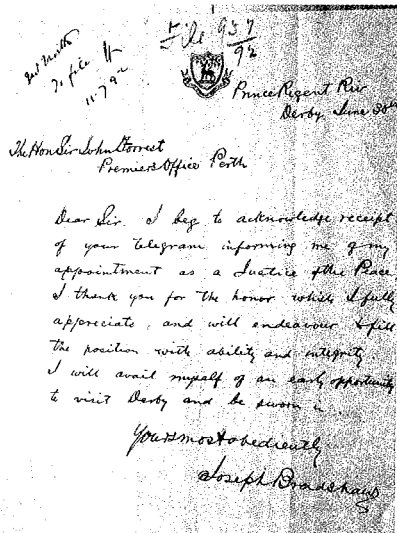 File 937
92
To file
11.7.92
Prince Regent Riv
Derby June 30th
The Hon Sir John Forrest
Premiers Office Perth
Dear Sir. I beg to acknowledge receipt
of your telegram informing me of my
appointment as a Justice of the Peace
I thank you for the honor which I fully
appreciate, and will endeavour to fill
the position with ability and integrity.
I will avail myself of an early opportunity
to visit Derby and be sworn in.
Yours most obediently
Joseph Bradshaw